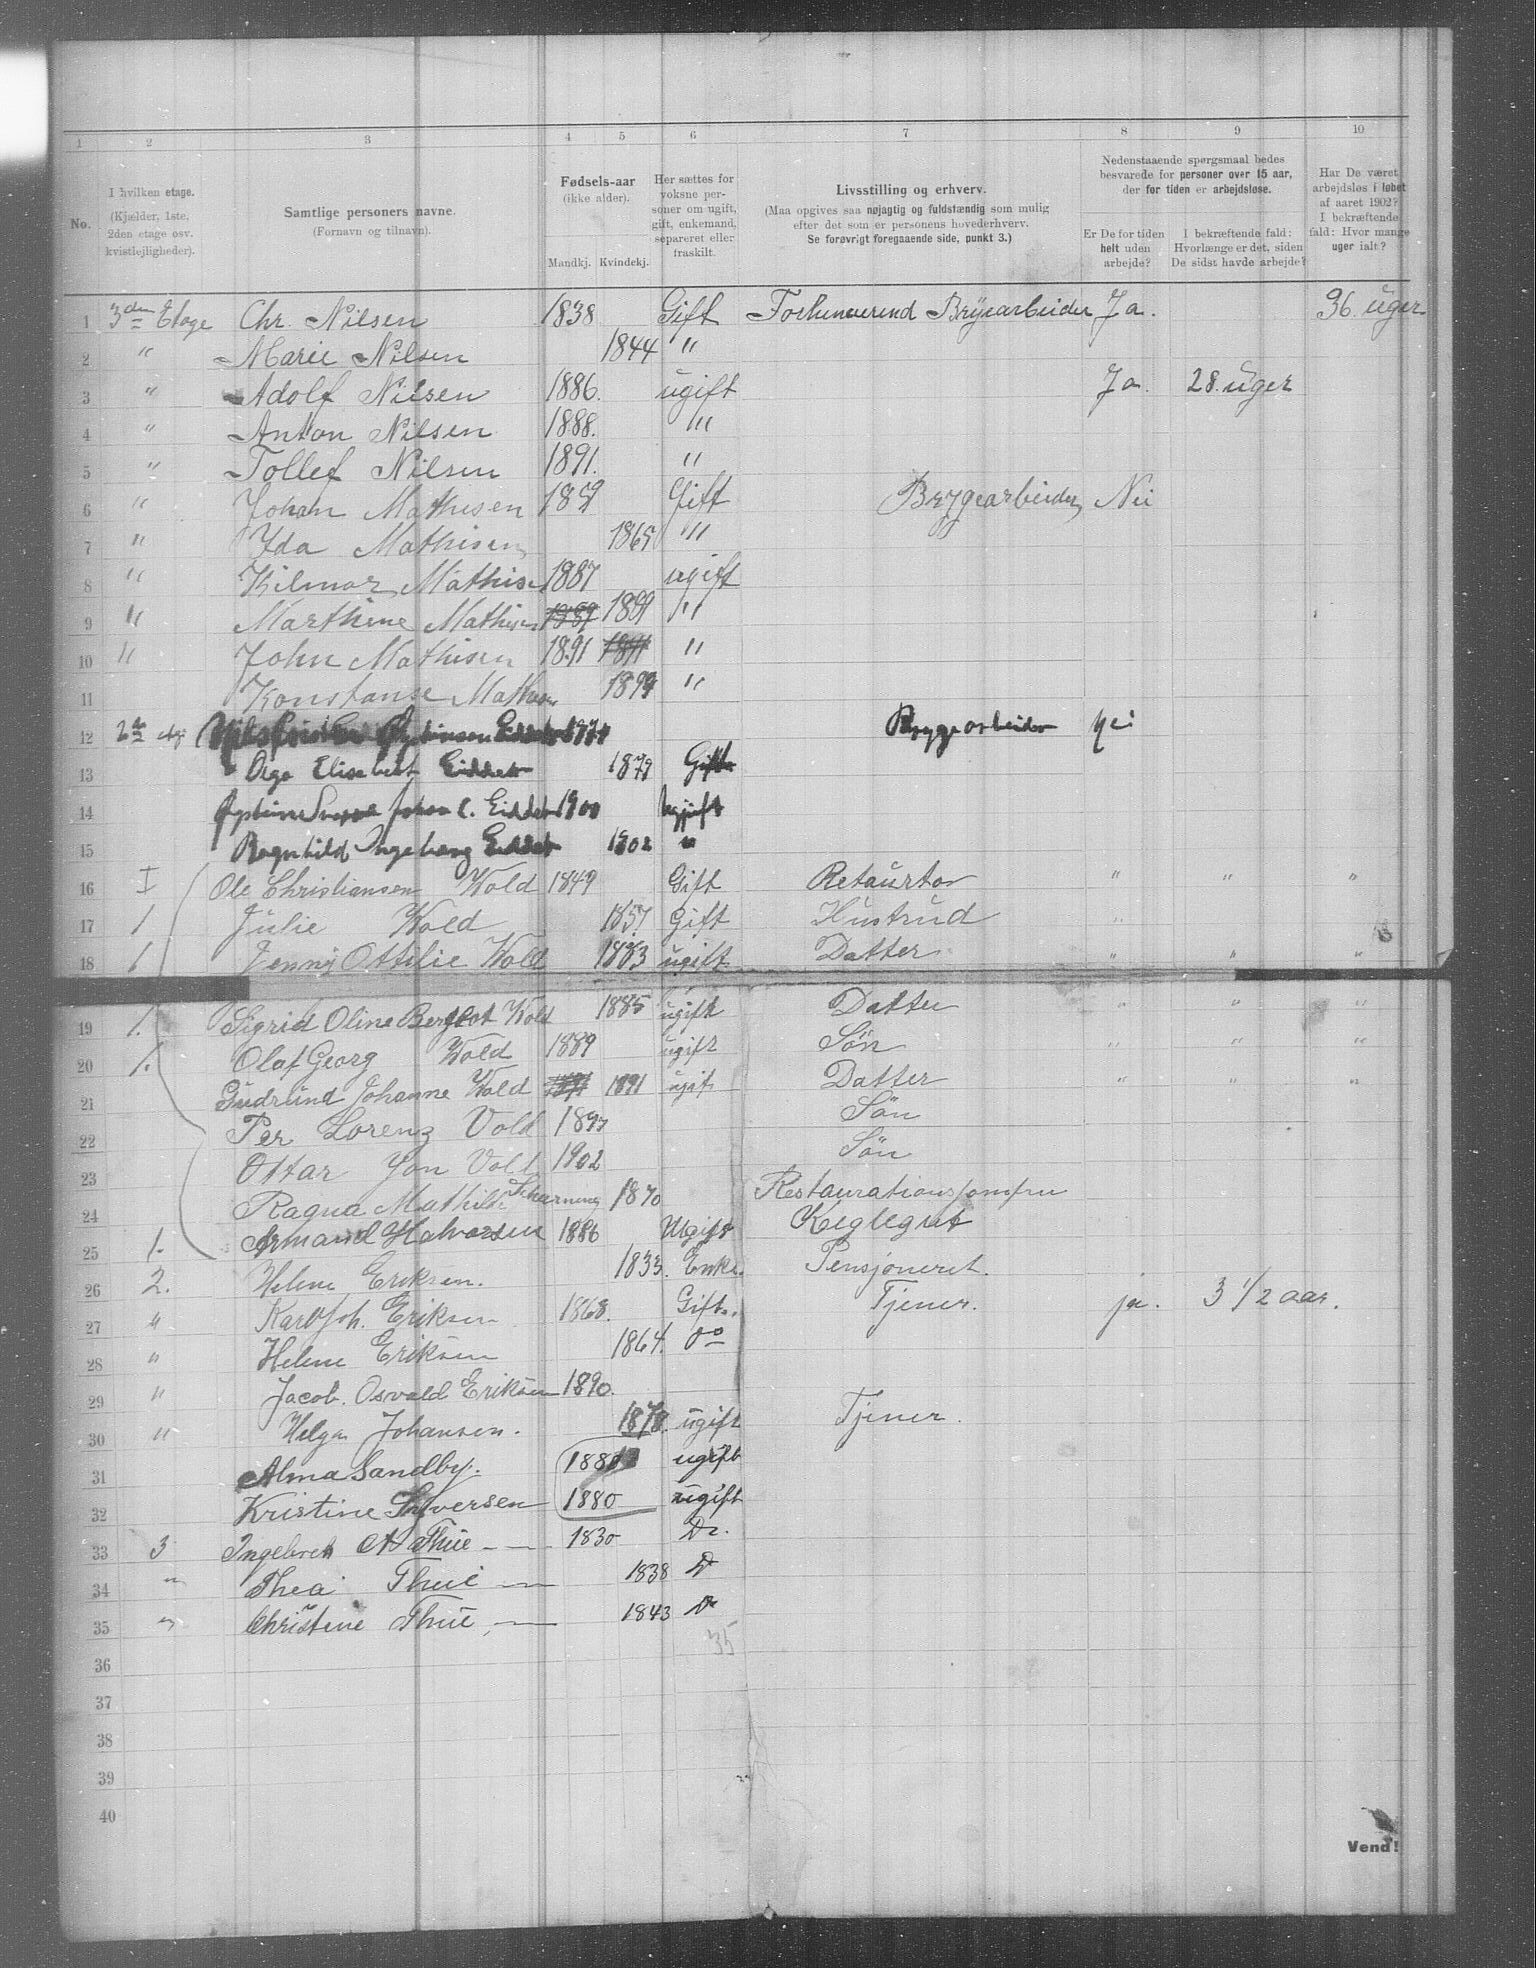 1 2 3 4 5 6 7 8 9 10
No.
I hvilken etage.
(Kjælder, 1ste,
2den etage osv.
kvistlejligheder).
Samtlige personers navne.
(Fornavn og tilnavn).
Fødsels-aar
(ikke alder).
Mandkj. Kvindekj.
Her sættes for
voksne per-
soner om ugift,
gift, enkemand,
separeret eller
fraskilt.
Livsstilling og erhverv.
(Maa opgives saa nøjagtig og fuldstændig som mulig
efter det som er personens hovederhverv.
Se forøvrigt foregaaende side, punkt 3.)
Nedenstaaende spørgsmaal bedes
besvarede for personer over 15 aar,
der for tiden er arbejdsløse.
Er De for tiden
helt uden
arbejde?
I bekræftende fald:
Hvorlænge er det, siden
De sidst havde arbejde?
Har De været
arbejdsløs i løbet
af aaret 1902?
I bekræftende
fald: Hvor mange
uger ialt?
1 3den Etage Chr. Nilsen 1838 Gift Bryearbeider Ja. 36 uger
2 " Marie Nilsen 1844 "
3 " Adolf Nilsen 1886. ugift Ja. 28. uger
4 " Anton Nilsen 1888. "
5 " Tollef Nilsen 1891. "
6 " Johan Mathisen 1859 Gift Bryggearbeider Nei
7 " Ida Mathisen 1865 "
8 " Hilmar Mathise 1887 ugift
9 " Marthine Mathisen 1889 "
10 " John Mathisen 1891 1891 "
11 Konstanse Mathisen 1899 "
12 2 etg Bryggearbeider nei
13 Olga Elisabert Eiddet 1879 Gift
14 Johan C. Eiddet 1900 ugift
15 Ragnhild Ingeborg Eiddet 1902 "
16 I Ole Christiansen Wold 1849 Gift Retaurtor " " "
17 1 Julie Wold 1857 Gift Hustrud "
18 1 Jenny Ottilie Wold 1883 ugift Datter " " "
19 1. Sigrid Oline Bergliot Wold 1885 ugift Datter " " "
20 1. Olaf Georg Wold 1889 ugift Søn " " "
21 Gudrund Johanne Wold 1891 1891 ugif Datter " " "
22 Per Lorenz Vold 1897 Søn
23 Ottar Jon Vold 1902 Søn
24 Ragna Mathilde 1870 Restaurationsjomfru
25 1. Armand Halvorsen 1886 Ugift Keglegut
26 2. Helene Eriksen. 1833. Enke. Pensjoneret.
27 " Karl Joh. Eriksen 1868. Gift. Tjener. ja. 3 1/2 aar.
28 " Helene Eriksen 1864. do
29 " Jacob. Osvald Eriksen 1890.
30 " Helga Johansen. 1878. ugift Tjener.
31 Alma Sandby. ugift
32 Kristine Syversen 1880 ugift
33 3 Ingebret A Thue 1830 Do.
34 " Thea Thue 1838 D
35 " Christene Thue 1843 Do
35
36
37
38
39
40
Vend!